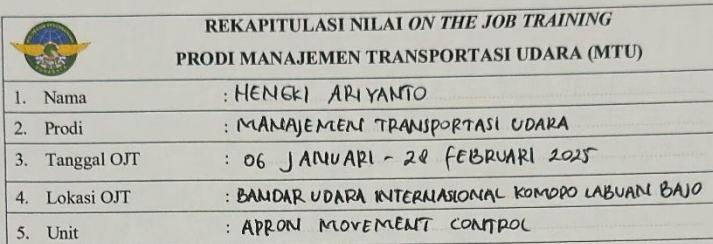 REKAPITULASI NILAI ON THE JOB TRAINING
PRODI MANAJEMEN TRANSPORTASI UDARA (MTU)
1. Nama : HENGKI ARIYANTO
2. Prodi : MANAJEMEN TRANSPORTASI UDARA
3. Tanggal OJT : 06 JANUARI - 28 FEBRUARI 2025
4. Lokasi OJT : BANDAR UDARA INTERNASIONAL KOMODO LABUAN BAJO
5. Unit : APRON MOVEMENT CONTROL